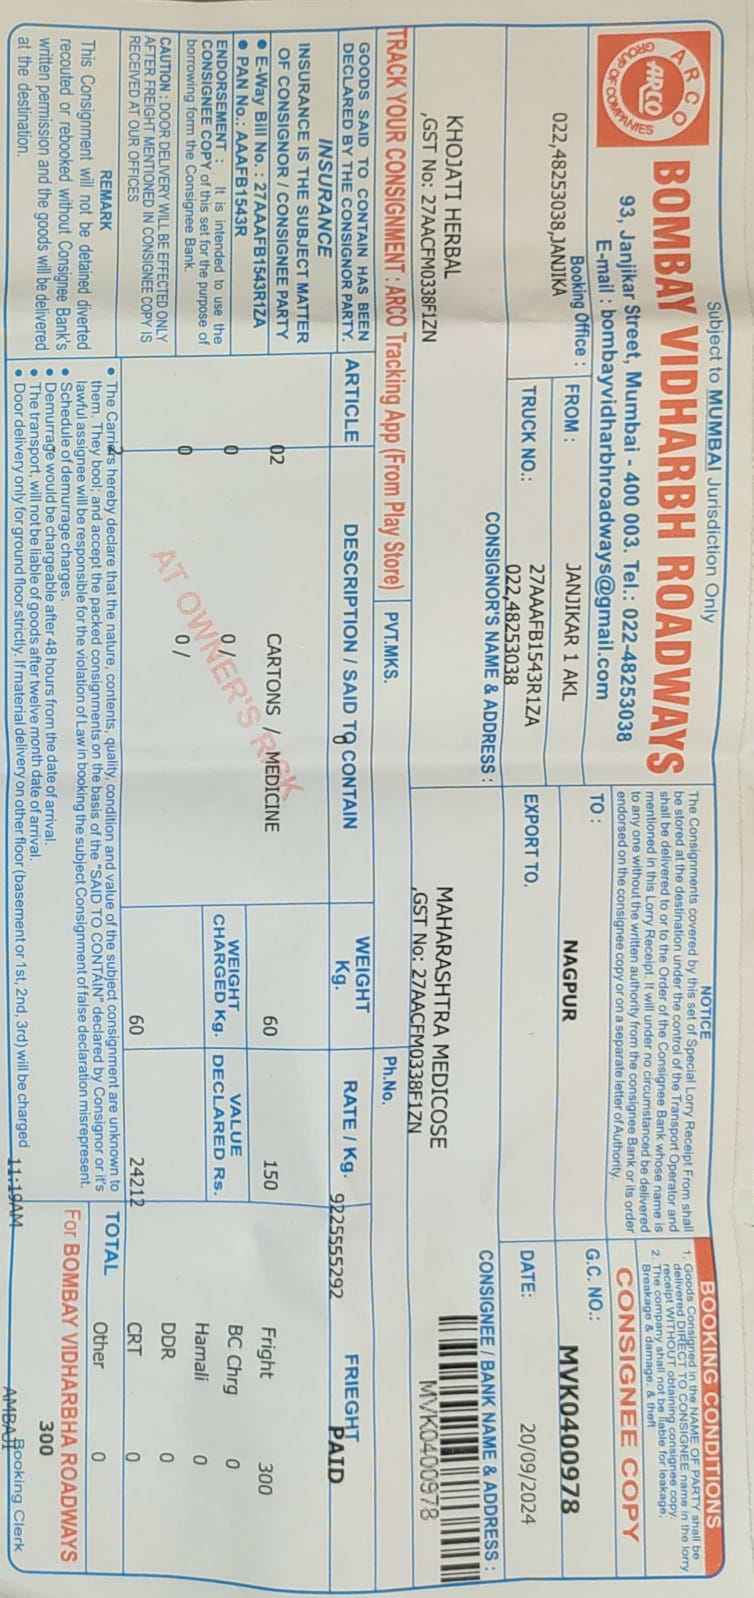 Subject to MUMBAI Jurisdiction Only
ARCO
GROUP OF COMPANIES
ARCO
BOMBAY VIDHARBH ROADWAYS
93, Janjikar Street, Mumbai - 400 003. Tel.: 022-48253038
E-mail : bombayvidharbhroadways@gmail.com
NOTICE
The Consignments covered by this set of Special Lorry Receipt From shall
be stored at the destination under the control of the Transport Operator and
shall be delivered to or to the Order of the Consignee Bank whose name is
mentioned in this Lorry Receipt. It will under no circumstanced be delivered
to any one without the written authority from the consignee Bank or its order
endorsed on the consignee copy or on a separate letter of Authority.
BOOKING CONDITIONS
1. Goods Consigned in the NAME OF PARTY shall be
delivered DIRECT TO CONSIGNEE name in the lorry
receipt WITHOUT obtaining consignee copy.
2. The company shall not be liable for leakage,
Breakage & damage. & theft
CONSIGNEE COPY
Booking Office :
022,48253038,JANJIKA
FROM :
JANJIKAR 1 AKL
TO :
NAGPUR
G.C. NO.:
MVK0400978
TRUCK NO.:
27AAAFB1543R1ZA
022,48253038
EXPORT TO.
DATE:
20/09/2024
CONSIGNOR'S NAME & ADDRESS :
KHOJATI HERBAL
,GST No: 27AACFM0338F1ZN
CONSIGNEE / BANK NAME & ADDRESS :
MAHARASHTRA MEDICOSE
,GST No: 27AACFM0338F1ZN
MVK0400978
TRACK YOUR CONSIGNMENT : ARCO Tracking App (From Play Store)
PVT.MKS.
Ph.No.
9225555292
GOODS SAID TO CONTAIN HAS BEEN
DECLARED BY THE CONSIGNOR PARTY.
INSURANCE
INSURANCE IS THE SUBJECT MATTER
OF CONSIGNOR / CONSIGNEE PARTY
• E-Way Bill No. : 27AAAFB1543R1ZA
• PAN No.: AAAFB1543R
ENDORSEMENT : It is intended to use the
CONSIGNEE COPY of this set for the purpose of
borrowing form the Consignee Bank.
CAUTION : DOOR DELIVERY WILL BE EFFECTED ONLY
AFTER FREIGHT MENTIONED IN CONSIGNEE COPY IS
RECEIVED AT OUR OFFICES
REMARK
This Consignment will not be detained diverted
recouted or rebooked without Consignee Bank's
written permission and the goods will be delivered
at the destination.
ARTICLE
DESCRIPTION / SAID TO CONTAIN
0
WEIGHT
Kg.
RATE / Kg.
FRIEGHT
PAID
02
CARTONS / MEDICINE
60
150
Fright 300
0
0 /
WEIGHT
CHARGED Kg.
VALUE
DECLARED Rs.
BC Chrg 0
0
0 /
Hamali 0
DDR 0
2
60
24212
CRT 0
Other 0
AT OWNER'S RISK
TOTAL
300
• The Carriers hereby declare that the nature, contents, quality, condition and value of the subject consignment are unknown to
them. They bool; and accept the packed consignments on the basis of the "SAID TO CONTAIN" declared by Consignor or it's
lawful assignee will be responsible for the violation of Law in booking the subject Consignment of false declaration misrepresent.
• Schedule of demurrage charges.
• Demurrage would be chargeable after 48 hours from the date of arrival.
• The transport, will not be liable of goods after twelve month date of arrival.
• Door delivery only for ground floor strictly. If material delivery on other floor (basement or 1st, 2nd, 3rd) will be charged
11:19AM
For BOMBAY VIDHARBHA ROADWAYS
AMBAJI
Booking Clerk